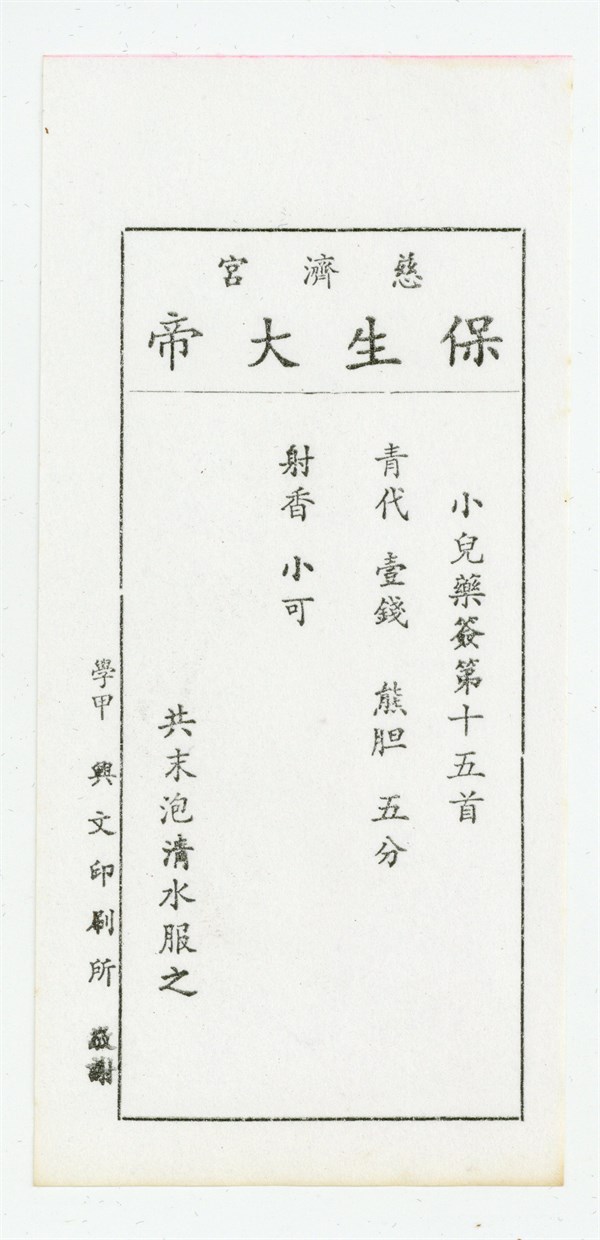 慈濟宮
保生大帝
小兒藥簽第十五首
青代 壹錢 熊胆 五分
射香 小可
共末泡清水服之
學甲 興文印刷所 敬謝